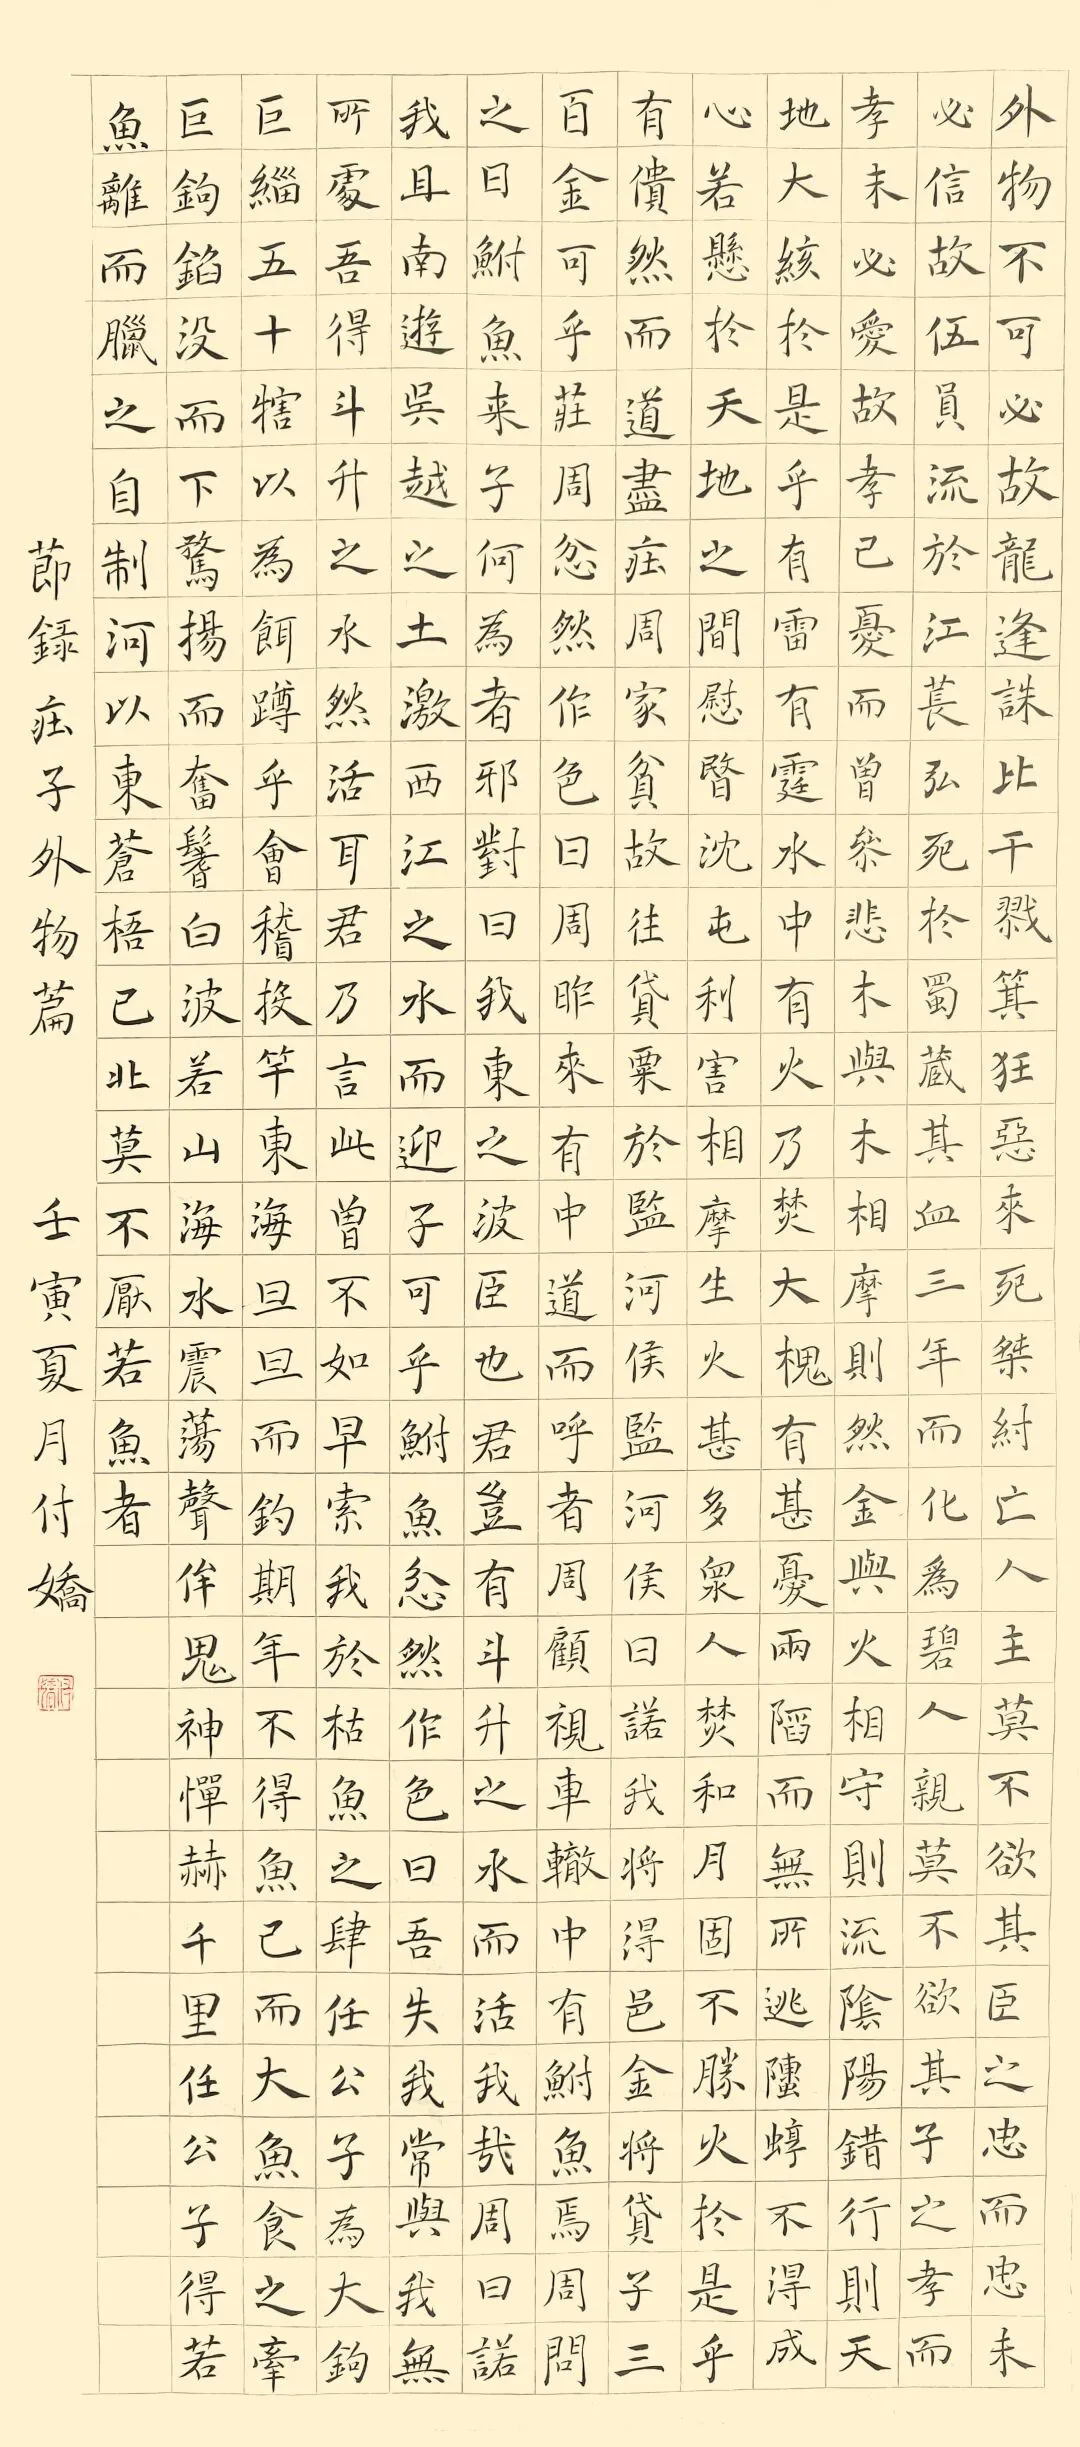 外物不可必故龍逢誅比干戮箕狂惡來死桀紂亡人主莫不欲其臣之忠而忠未
必信故伍員流於江萇弘死於蜀藏其血三年而化爲碧人親莫不欲其子之孝而
孝未必愛故孝己憂而曾參悲木與木相摩則然金與火相守則流陰陽錯行則天
地大絯於是乎有雷有霆水中有火乃焚大槐有甚憂兩陷而無所逃螴蜳不得成
心若懸於天地之間慰暋沈屯利害相摩生火甚多衆人焚和月固不勝火於是乎
有僓然而道盡莊周家貧故往貸粟於監河侯監河侯曰諾我將得邑金將貸子三
百金可乎莊周忿然作色曰周昨來有中道而呼者周顧視車轍中有鮒魚焉周問
之曰鮒魚来子何為者邪對曰我東之波臣也君豈有斗升之水而活我哉周曰諾
我且南遊吳越之土激西江之水而迎子可乎鮒魚忿然作色曰吾失我常與我無
所處吾得斗升之水然活耳君乃言此曾不如早索我於枯魚之肆任公子為大鉤
巨緇五十犗以為餌蹲乎會稽投竿東海旦旦而釣期年不得魚已而大魚食之牽
巨鉤錎没而下騖揚而奮鬐白波若山海水震蕩聲侔鬼神憚赫千里任公子得若
魚離而臘之自制河以東蒼梧已北莫不厭若魚者
節録莊子外物篇 壬寅夏月付嬌